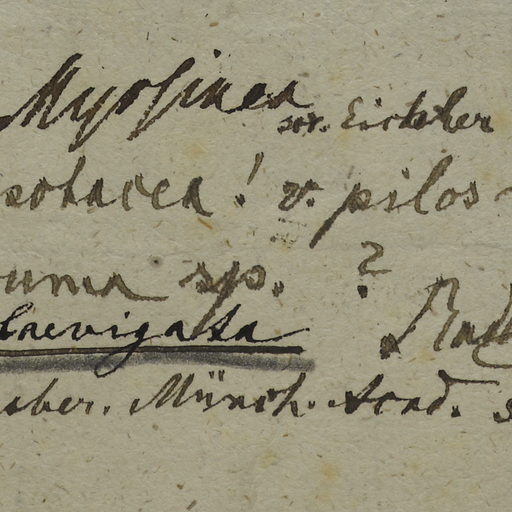 Myrsinea
scr. Eichler
potacea! v. pilos
uma sp. ?
laevigata Radl
ber. Münch. Acad. s